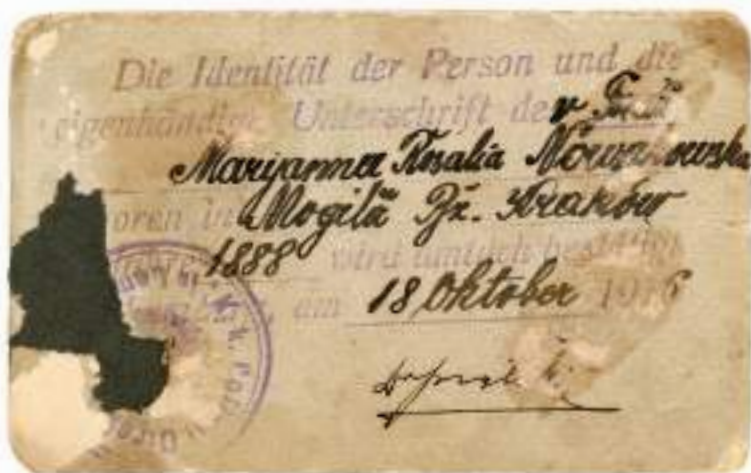 Die Identität der Person und die
eigenhändige Unterschrift der
Maryanna Rosalia Nowakowska
oren in Mogiła Bz. Kraków
1888 wird amtlich bestätigt
am 18 Oktober 1916